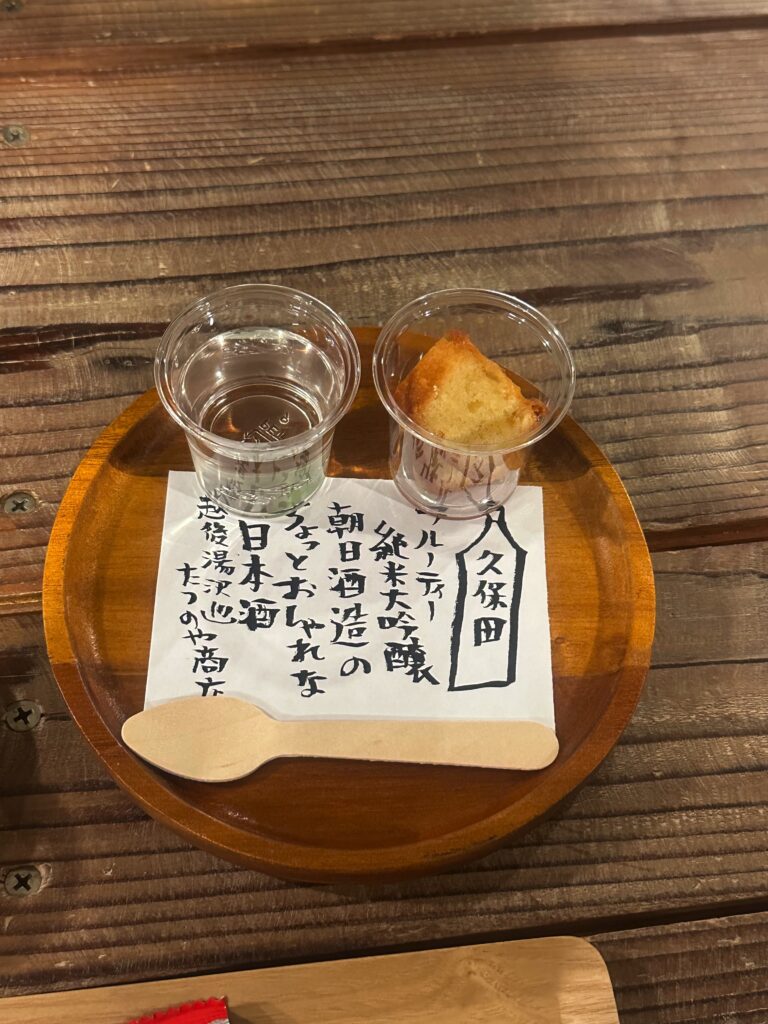 久保田
フルーティー
純米大吟醸
朝日酒造の
ちょっとおしゃれな
日本酒
越後湯沢
たつのや商店